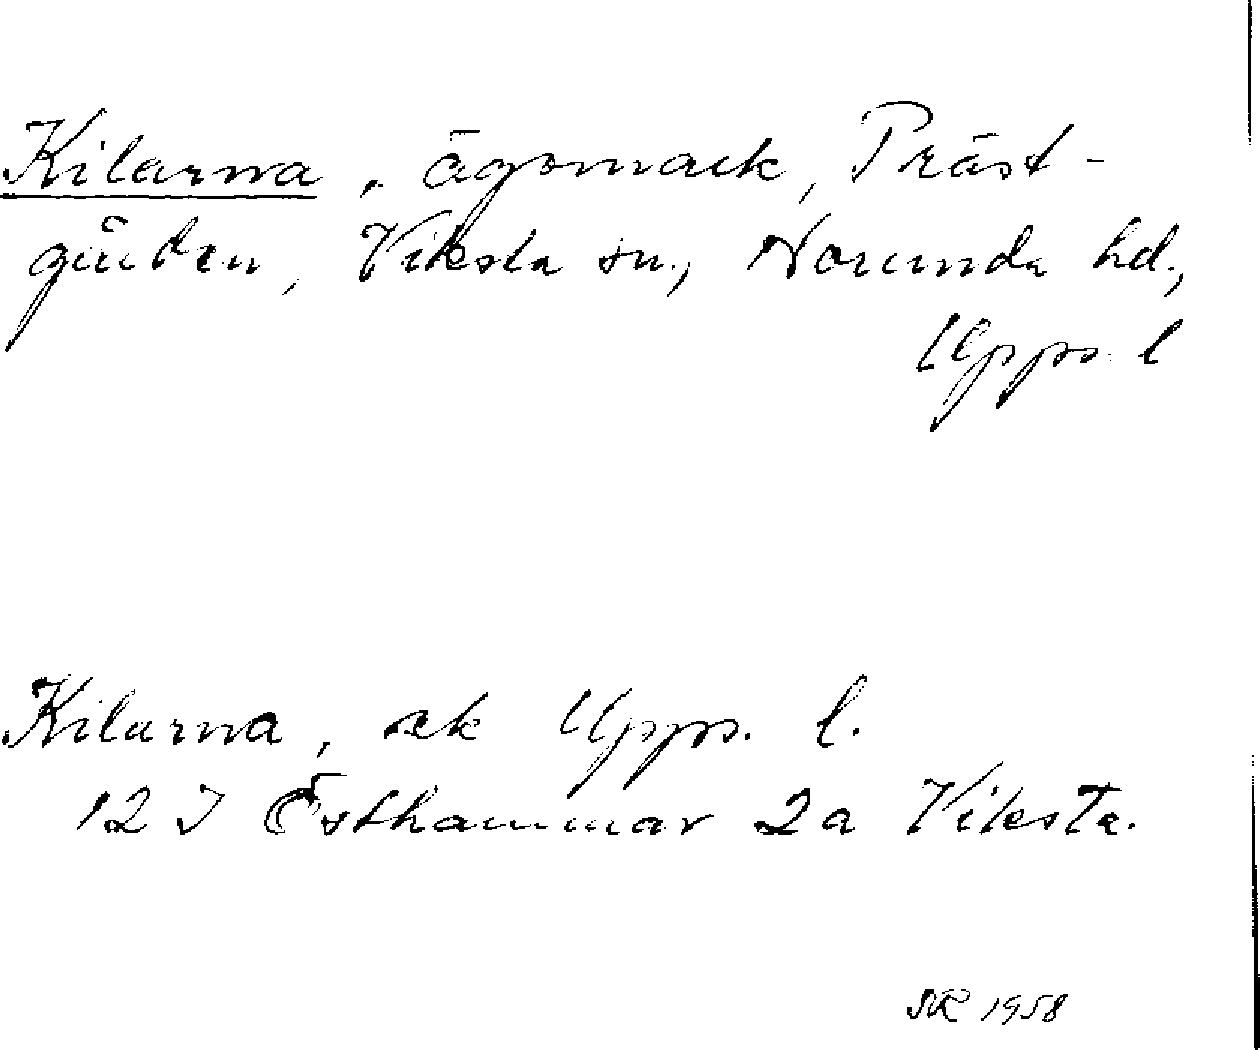 Kilarna, ägomark, Präst-
gården, Viksta sn., Norunda hd.,
Upps. l
Kilarna, ek Upps. l.
12 I Östhammar 2a Viksta.
1958